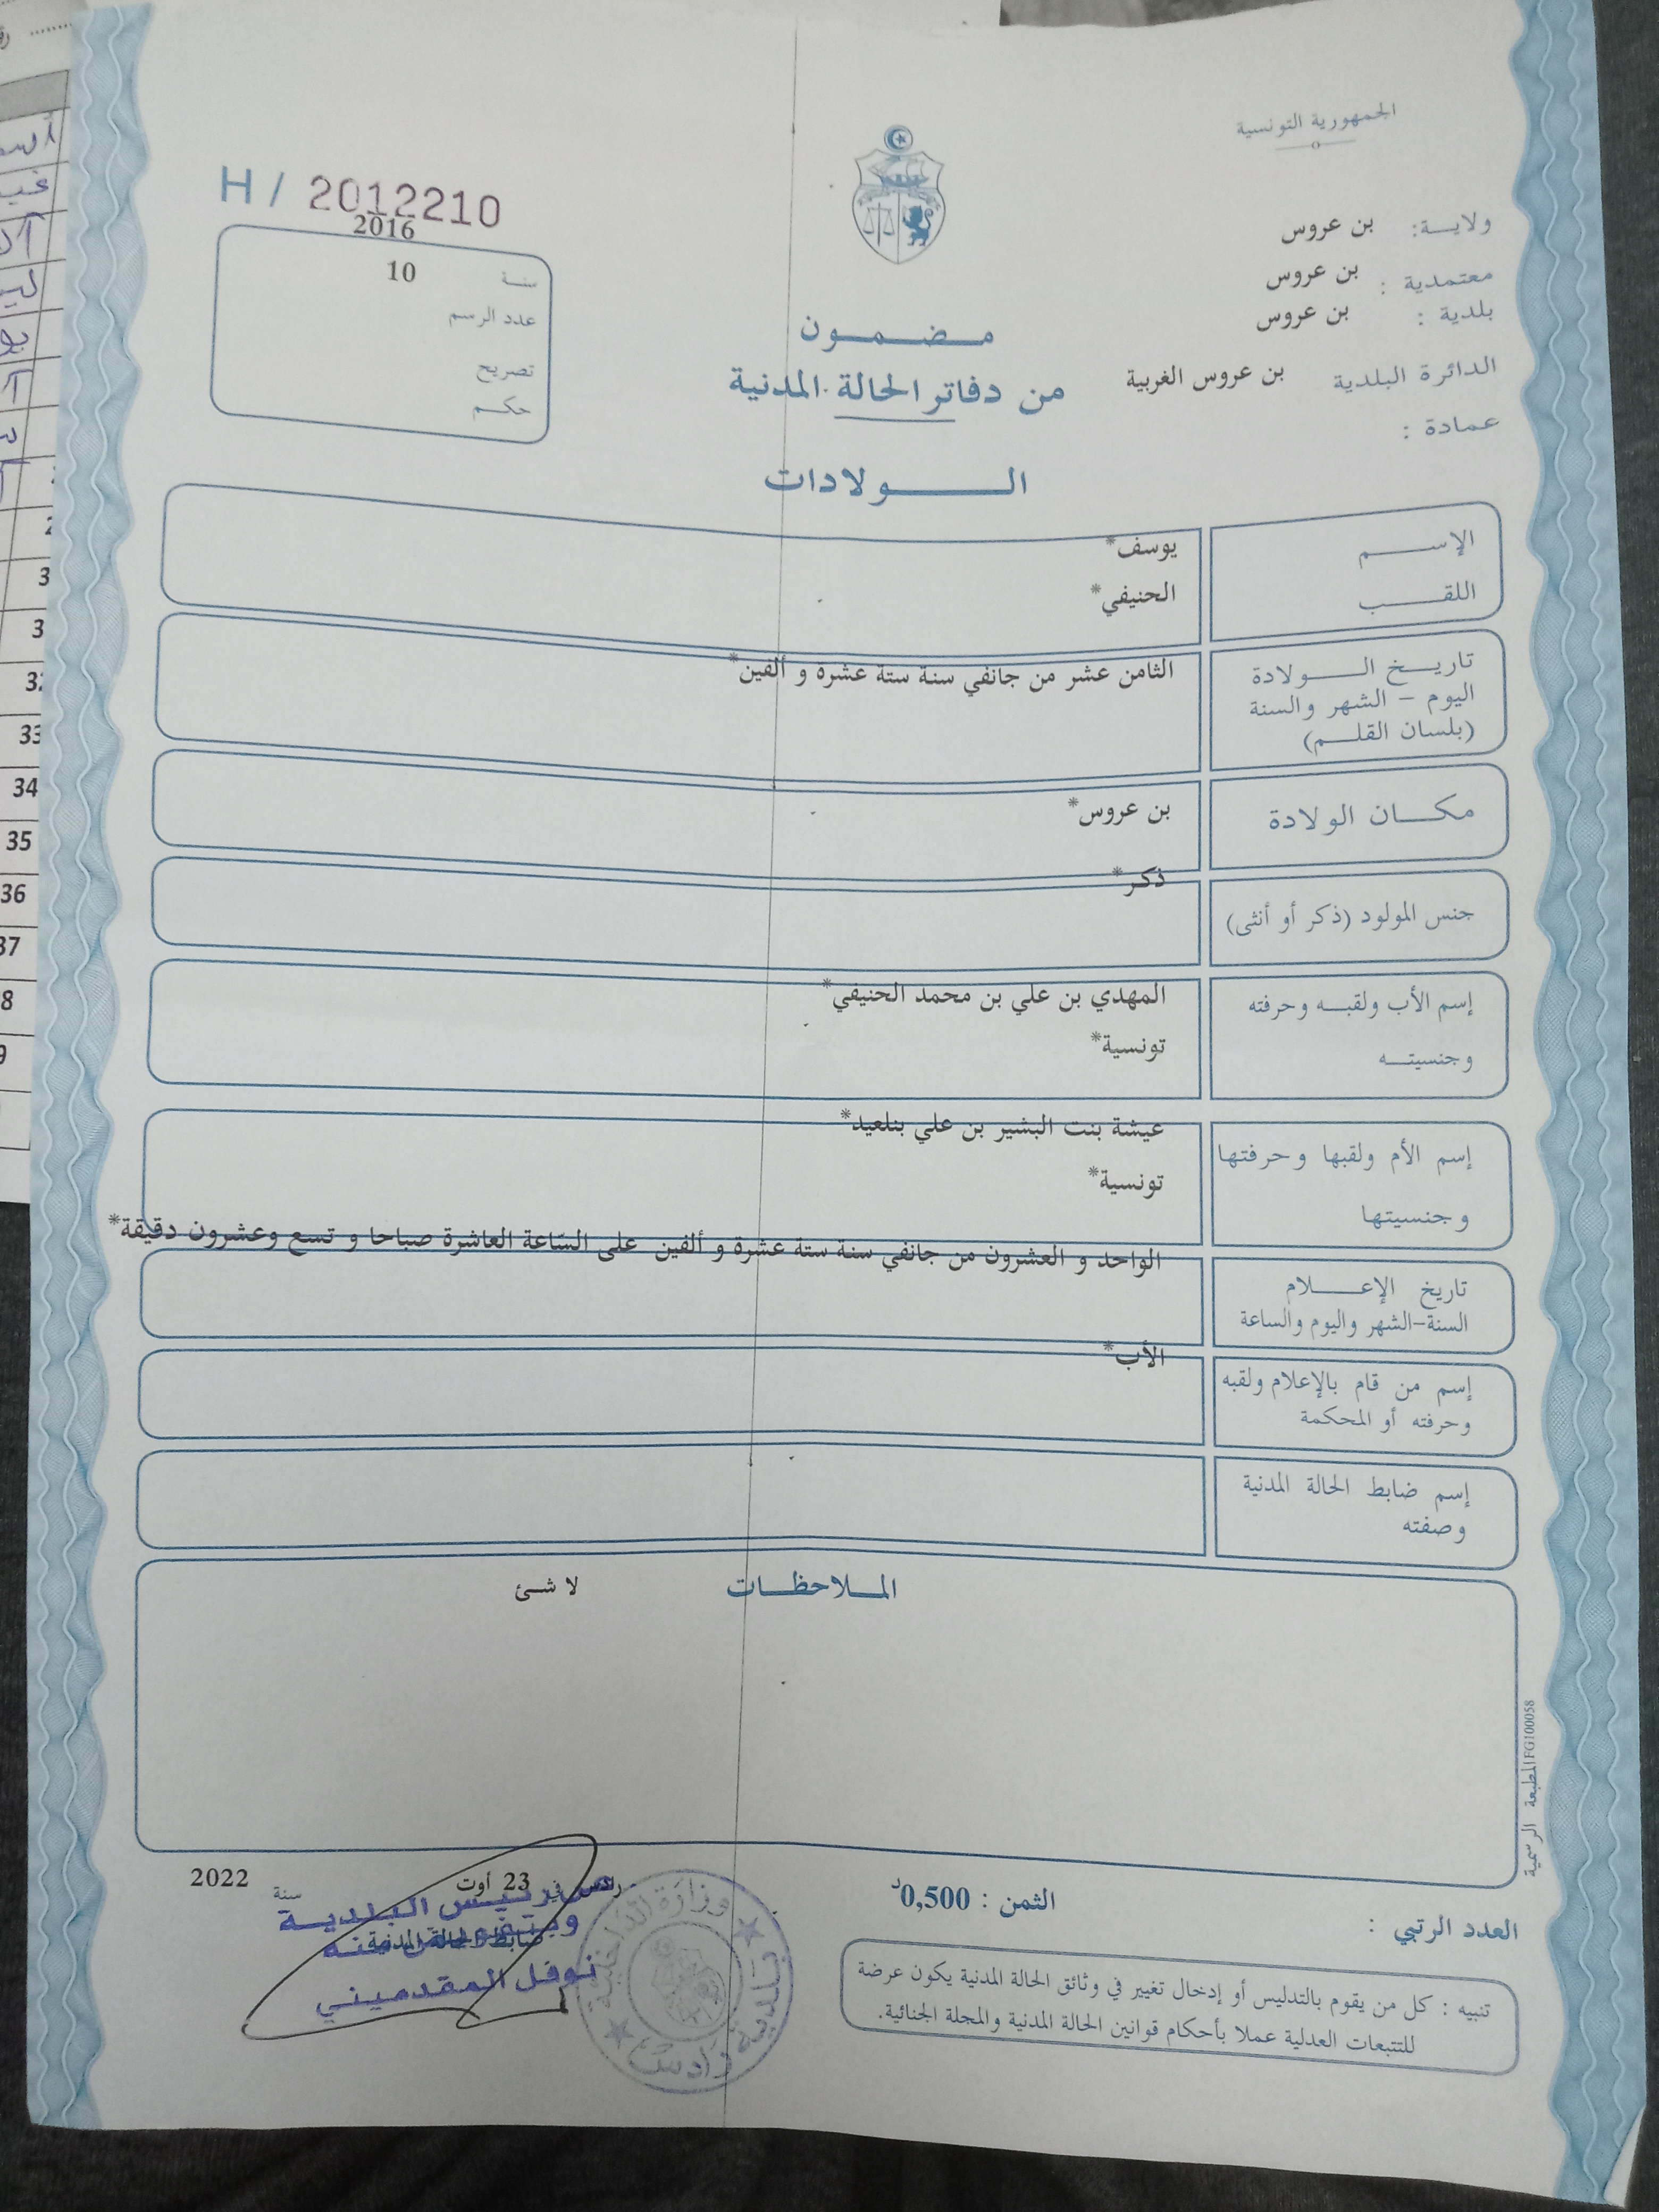 الجمهورية التونسية
ولايـــة: بن عروس
معتمدية : بن عروس
بلدية : بن عروس
الدائرة البلدية بن عروس الغربية
عمادة :
H / 2012210
2016
سنــة 10
عدد الرسم
تصريح
حكــم
مـــضـــمـــون
من دفاتر الحالة المدنية
الــــــولادات
الإســـــم يوسف*
اللقـــــب الحنيفي*
تاريـــخ الـــــولادة
اليوم - الشهر والسنة
(بلسان القلـــم)
الثامن عشر من جانفي سنة ستة عشرة و ألفين*
مكـــان الولادة بن عروس*
جنس المولود (ذكر أو أنثى) ذكر*
إسم الأب ولقبــه وحرفته
وجنسيتــه
المهدي بن علي بن محمد الحنيفي*
تونسية*
إسم الأم ولقبها وحرفتها
وجنسيتها
عيشة بنت البشير بن علي بنلعيد*
تونسية*
تاريخ الإعـــــلام
السنة-الشهر واليوم والساعة
الواحد و العشرون من جانفي سنة ستة عشرة و ألفين على السّاعة العاشرة صباحا و تسع وعشرون دقيقة*
إسم من قام بالإعلام ولقبه
وحرفته أو المحكمة
الأب*
إسم ضابط الحالة المدنية
وصفته
المـــلاحظـــات لا شئ
المطبعة الرسمية FG100058
رادس في 23 أوت سنة 2022
رئيس البلدية
ضابط الحالة المدنية
نوفل المقدميني
وزارة الداخلية
رادس
الثمن : 0,500د
العدد الرتبي :
تنبيه : كل من يقوم بالتدليس أو إدخال تغيير في وثائق الحالة المدنية يكون عرضة
للتتبعات العدلية عملا بأحكام قوانين الحالة المدنية والمجلة الجنائية.
3
3
33
34
35
36
37
8
9